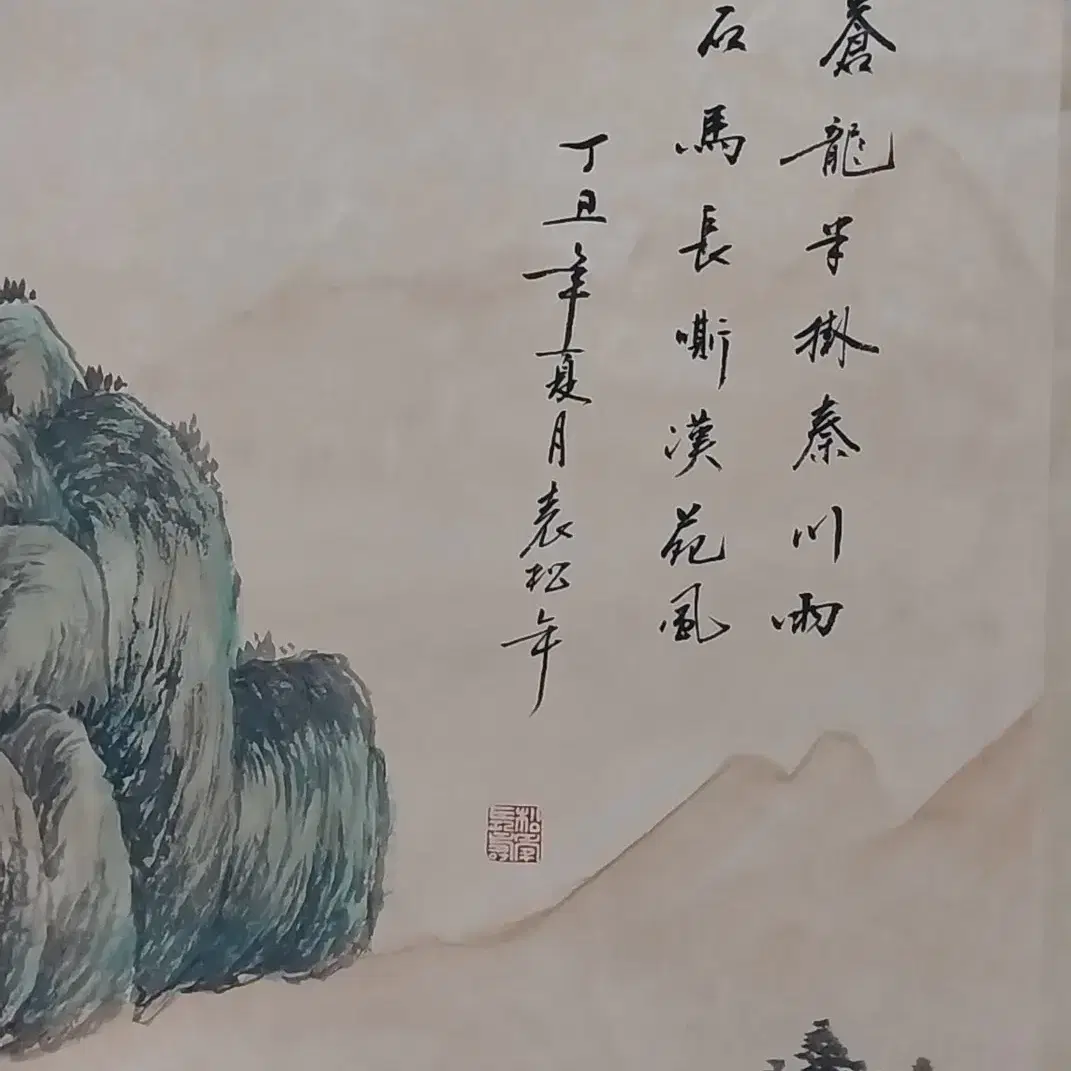 蒼龍半掛秦川雨
石馬長嘶漢苑風
丁丑年夏月袁松年
松年長壽